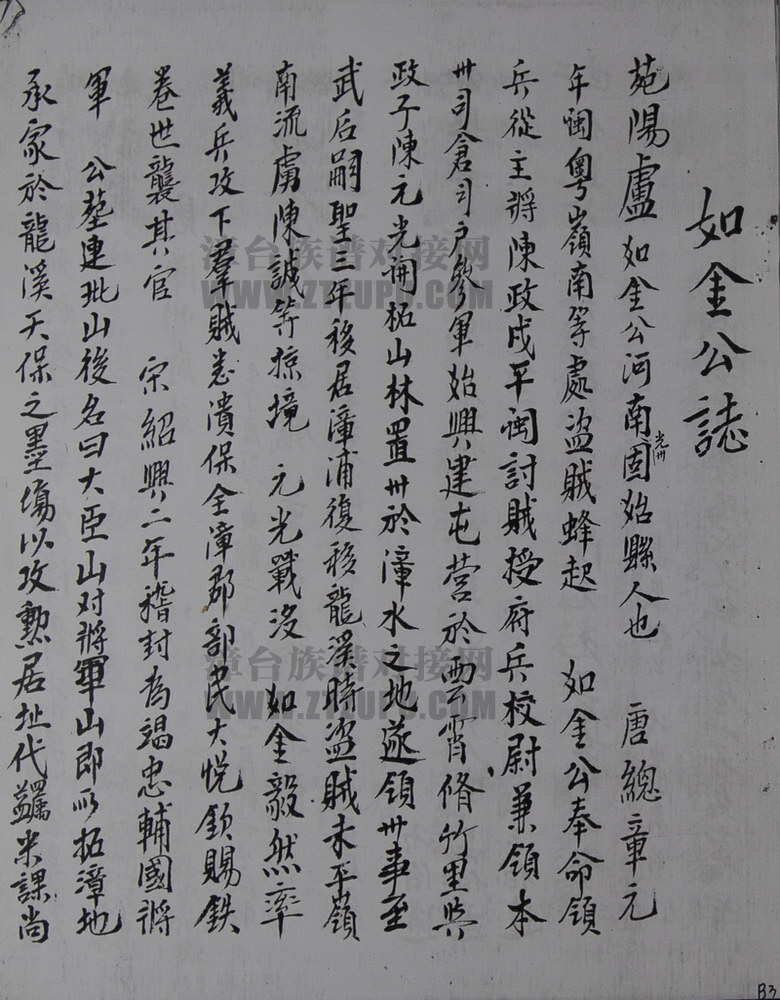 如金公誌
苑陽盧 如金公河南光州固始縣人也 唐總章元
年閩粵嶺南等處盜賊蜂起 如金公奉命領
兵從主將陳政戍平閩討賊授府兵校尉兼領本
卅司倉司戶叅軍始興建屯營於雲霄脩竹里與
政子陳元光開柘山林置卅於漳水之地遂領卅事至
武后嗣聖三年移居漳浦復移龍溪時盜賊未平嶺
南流虜陳誠等掠境 元光戰没 如金毅然率
義兵攻下羣賊悉潰保全漳郡部民大悅欽賜鉄
卷世襲其官 宋紹興二年 封為竭忠輔國將
軍 公塟連 山後名曰大臣山对將軍山即以拓漳地
承家於龍溪天保之墨塲以攻勲居址代蠲米課尚
漳台族谱对接网
WWW.ZTZUPU.COM
漳台族谱对接网
WWW.ZTZUPU.COM
B3